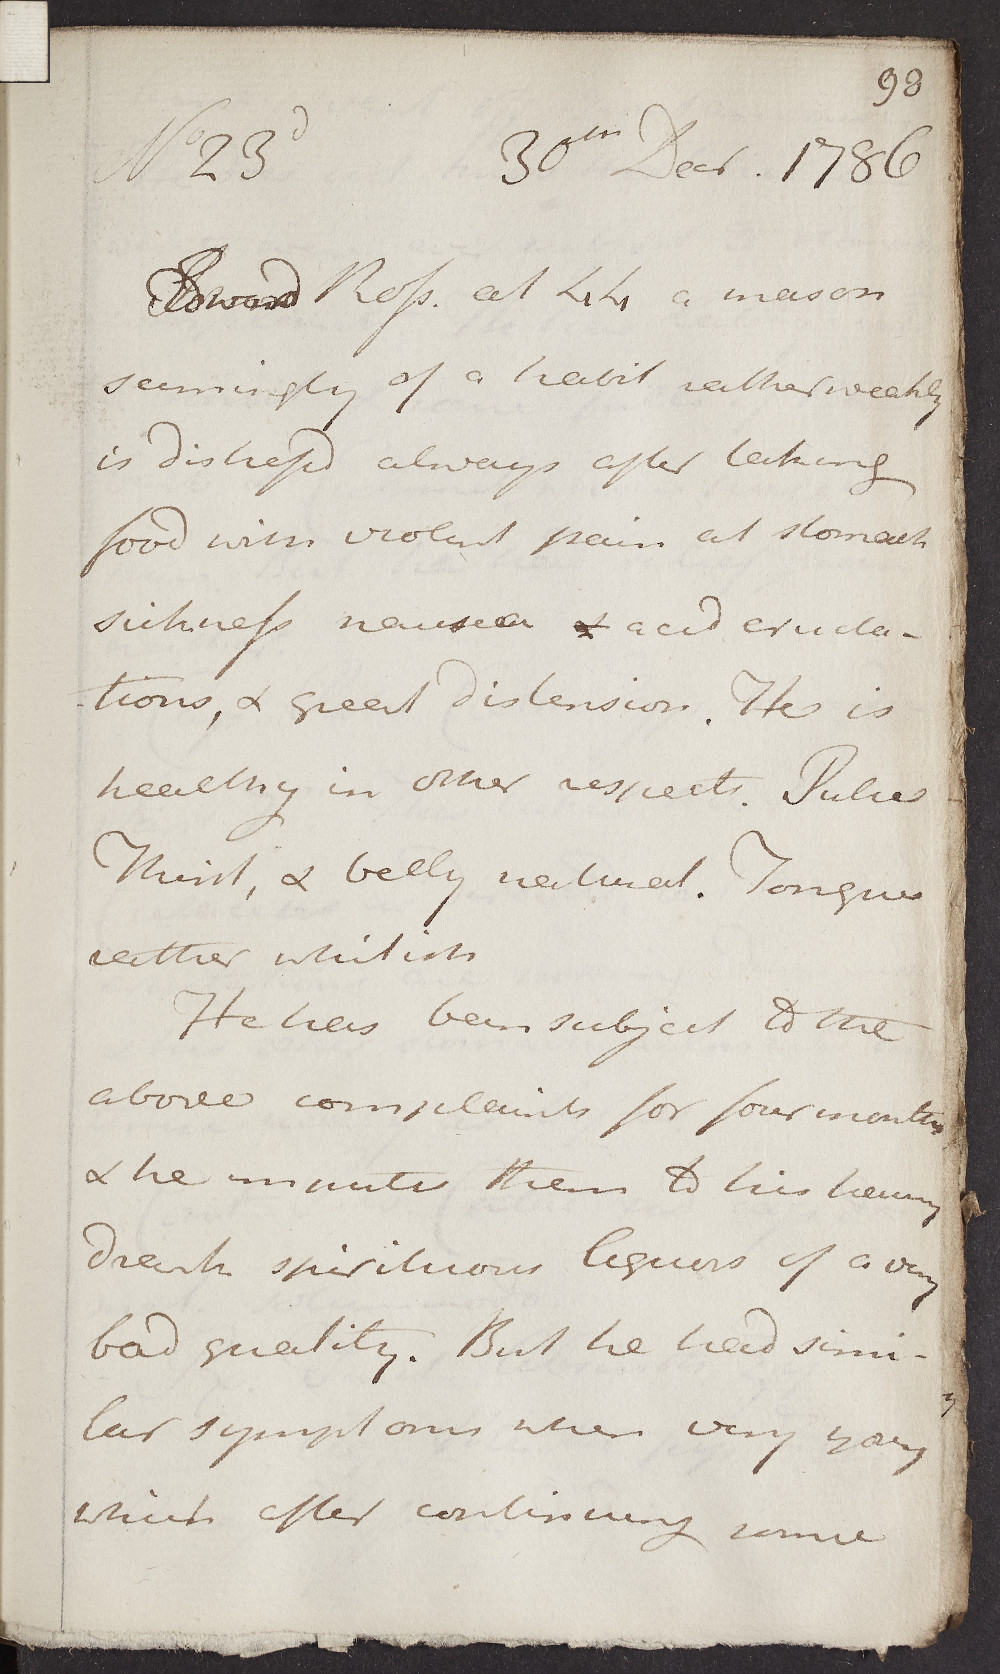 98
No 23d 30th Decr. 1786
Edward Ross. æt 44 a mason
seemingly of a habit rather weakly
is distressd always after taking
food with violent pain at stomach
sickness nausea & acid eructa-
-tions, & great distension. He is
healthy in other respects. Pulse
Thirst, & belly natural. Tongue
rather whitish
He has been subject to the
above complaints for four months
& he imputes them to his having
drank spirituous liquors of a very
bad quality. But he had simi-
lar symptoms when very young
which after continuing some